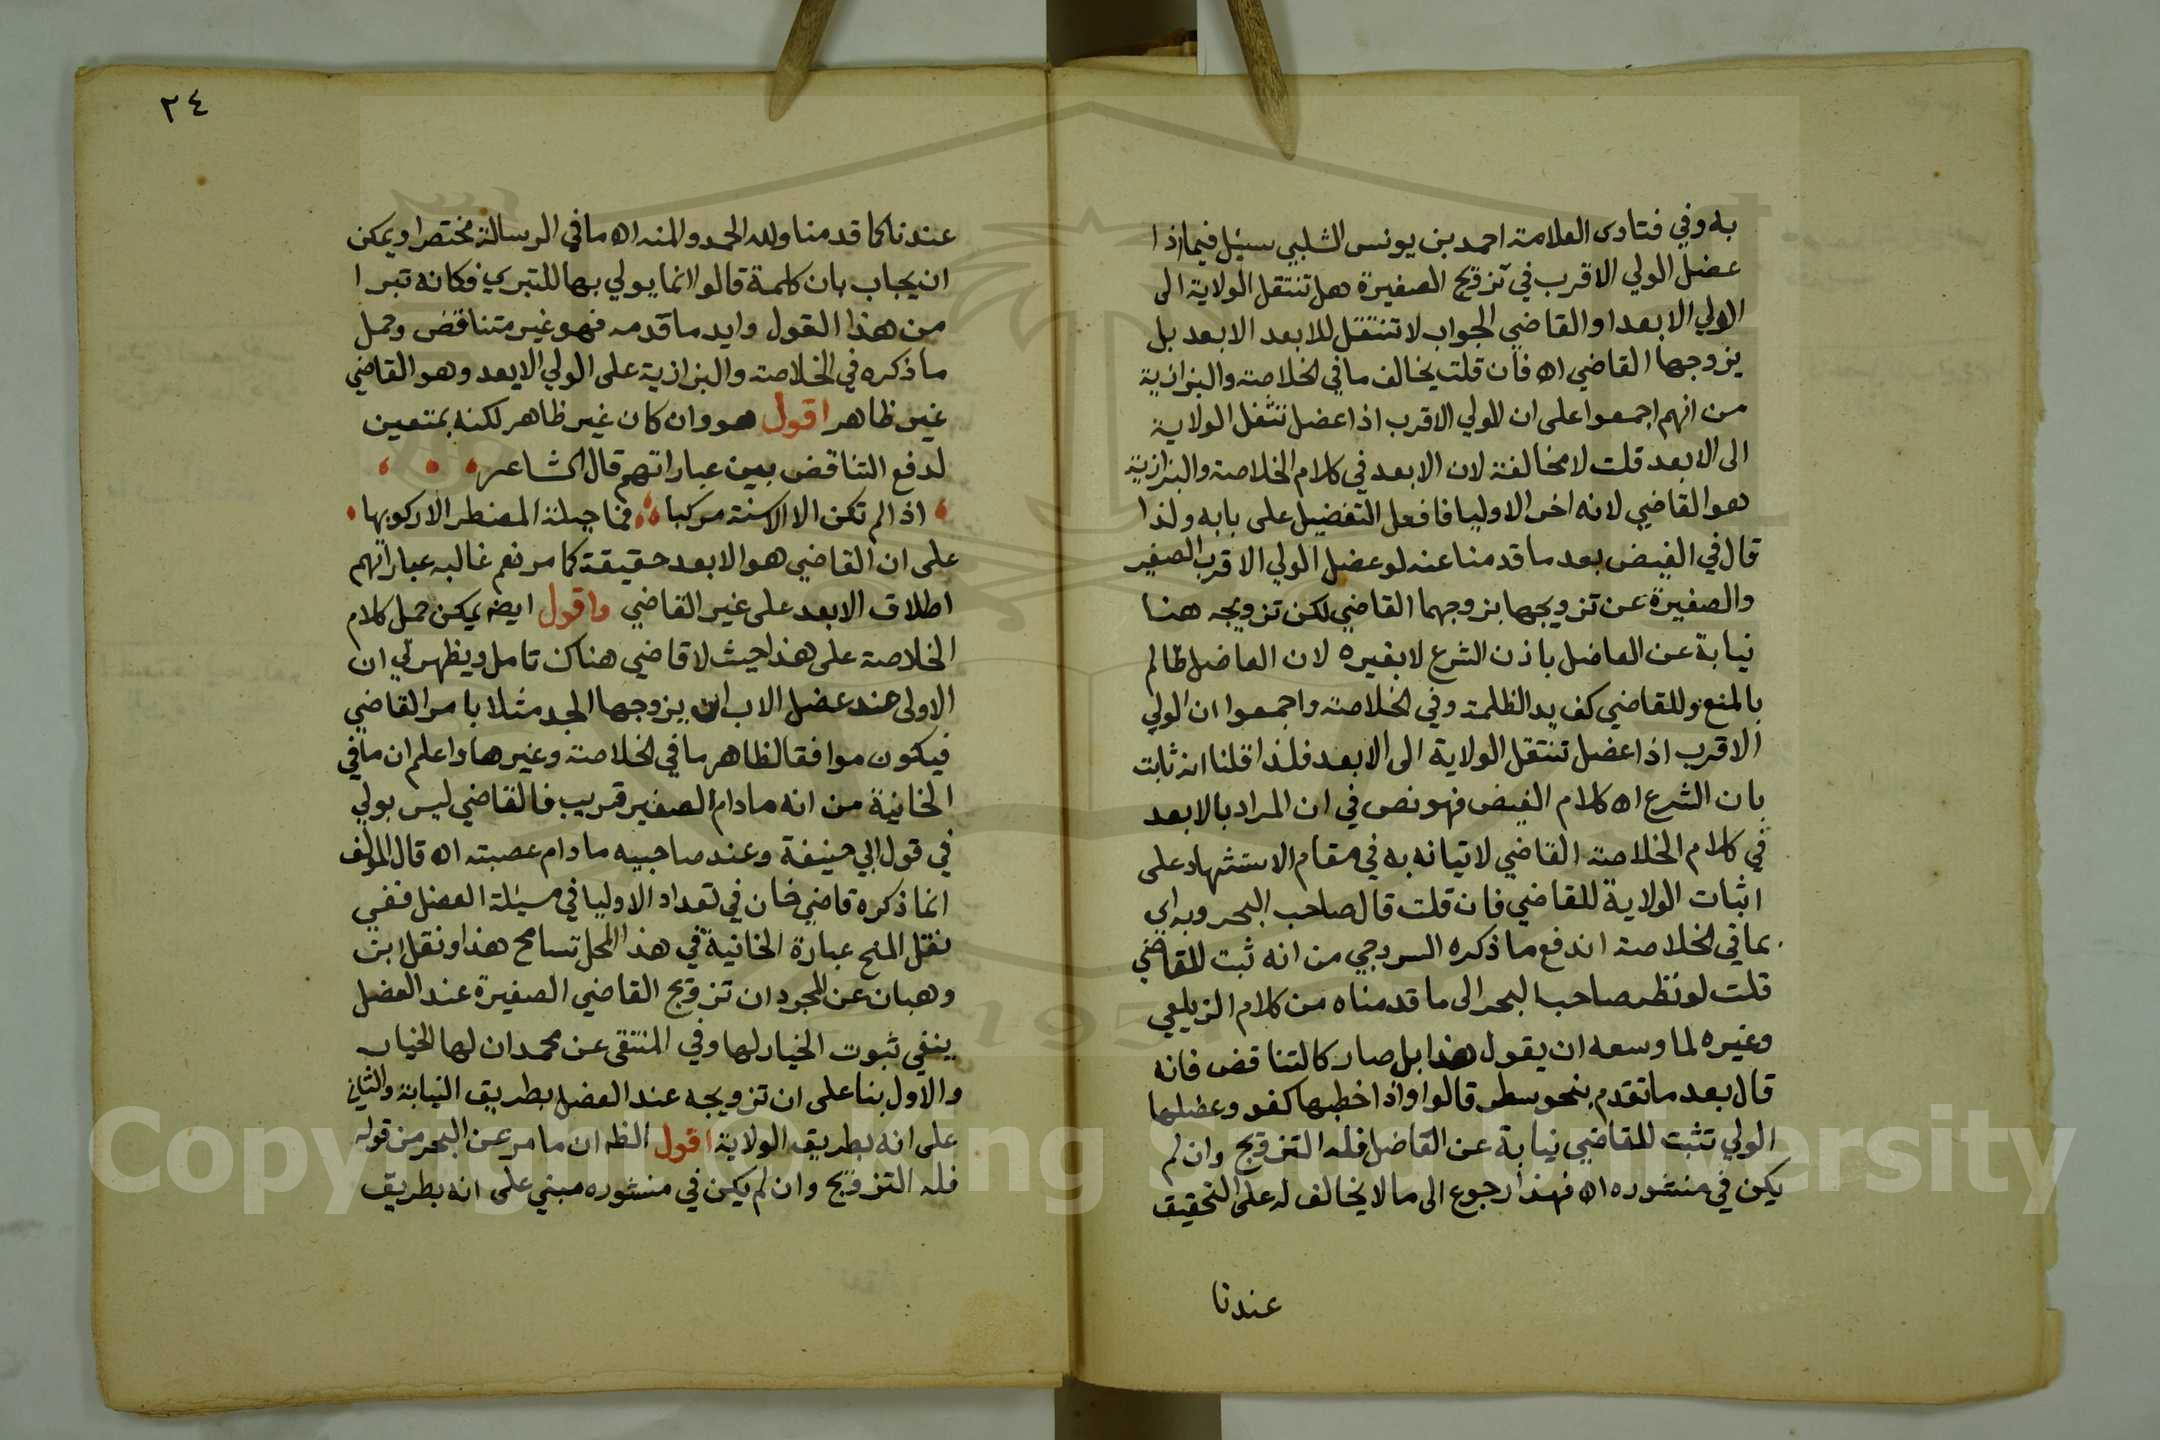 به وفي فتاوى العلامة احمد بن يونس الشلبي سئل فيما اذا
عضل الولي الاقرب في تزويج الصغيرة هل تنتقل الولاية الى
الولي الابعد او القاضي الجواب لا تنتقل للابعد الابعد بل
يزوجها القاضي اه فان قلت يخالف ما في الخلاصة والبزازية
من انهم اجمعوا على ان الولي الاقرب اذا عضل تنتقل الولاية
الى الابعد قلت لا مخالفة لان الابعد في كلام الخلاصة والبزازية
هو القاضي لانه اخر الاوليا فافعل التفضيل على بابه ولذا
قال في الفيض بعد ما قدمنا عنه لو عضل الولي الاقرب الصغير
والصغيرة عن تزويجها يزوجهما القاضي لكن تزويجه هنا
نيابة عن العاضل باذن الشرع لا بغيره لان العاضل ظالم
بالمنع وللقاضي كف يد الظلمة وفي الخلاصة واجمعوا ان الولي
الاقرب اذا عضل تنتقل الولاية الى الابعد فلذا قلنا انه ثابت
بان الشرع اه كلام الفيض فهو نص في ان المراد بالابعد
في كلام الخلاصة القاضي لاتيانه به في مقام الاستشهاد على
اثبات الولاية للقاضي فان قلت قال صاحب البحر وبه اي
بما في الخلاصة اندفع ما ذكره السروجي من انه ثبت للقاضي
قلت لو نظر صاحب البحر الى ما قدمناه من كلام الزيلعي
وغيره لما وسعه ان يقول هذا بل صار كالتناقض فانه
قال بعد ما تقدم بنحو سطر قالوا واذا خطبها كفو وعضلها
الولي تثبت للقاضي نيابة عن القاضل فله التزويج وان لم
يكن في منشوره اه فهذا رجوع الى ما لا يخالف له على التحقيق
عندنا
٢٤
عندنا كما قدمنا ولله الحمد والمنه اه ما في الرسالة مختصرا ويمكن
ان يجاب بان كلمة قالوا انما يولي بها للتبري فكانه تبرا
من هذا القول وايد ما قدمه فهو غير متناقض وحمل
ما ذكره في الخلاصة والبزازية على الولي الابعد وهو القاضي
غير ظاهر اقول هو وان كان غير ظاهر لكنه يمتعين
لدفع التناقض بين عباراتهم قال الشاعر
اذا لم تكن الا الاسنة مركبا فما حيلة المضطر الا ركوبها
على ان القاضي هو الابعد حقيقة كما مر نعم غالب عباراتهم
اطلاق الابعد على غير القاضي واقول ايضه يمكن حمل كلام
الخلاصة على هذا حيث لا قاضي هناك تامل ويظهر لي ان
الاولى عند عضل الاب ان يزوجها الجد مثلا بامر القاضي
فيكون موافقا لظاهر ما في الخلاصة وغيرها واعلم ان ما في
الخانية من انه ما دام الصغير قريب فالقاضي ليس بولي
في قول ابي حنيفة وعند صاحبيه ما دام عصبته اه قال المولف
انما ذكره قاضي خان في تعداد الاوليا في مسئلة العضل ففي
نقل المنح عبارة الخانية في هذا المحل تسامح هذا ونقل ابن
وهبان عن المجرد ان تزويج القاضي الصغيرة عند العضل
ينفي ثبوت الخيار لها وفي المنتقى عن محمد ان لها الخيار
والاول بنا على ان تزويجه عند العضل بطريق النيابة والثاني
على انه بطريق الولاية اقول الظه ان ما مر عن البحر من قوله
فله التزويج وان لم يكن في منشوره مبني على انه بطريق
1957
Copyright © King Saud University